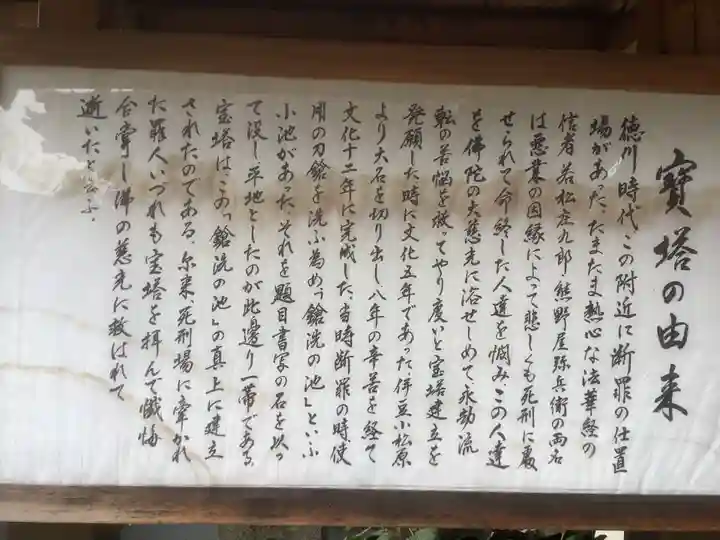 寳塔の由来
徳川時代、この附近に断罪の仕置
場があった、たまたま熱心な法華経の
信者若松庄九郎熊野屋弥兵衛の両名
は悪業の因縁によって悲しくも死刑に処
せられて命終した人達を憫み、この人達
を佛陀の大慈光に浴せしめて永劫流
転の苦悩を救ってやり度いと宝塔建立を
発願した時に文化五年であった、伊豆小松原
より大石を切り出し、八年の辛苦を経て
文化十二年に完成した、当時断罪の時使
用の刀鎗を洗ふ為め「鎗洗の池」といふ
小池があった、それを題目書写の石を以っ
て没し平地としたのが此邉り一帯である、
宝塔は、この「鎗洗の池」の真上に建立
されたのである、尓来死刑場に牽かれ
た罪人いづれも宝塔を拝んで懺悔
合掌し佛の慈光に救はれて
逝いたと云ふ、